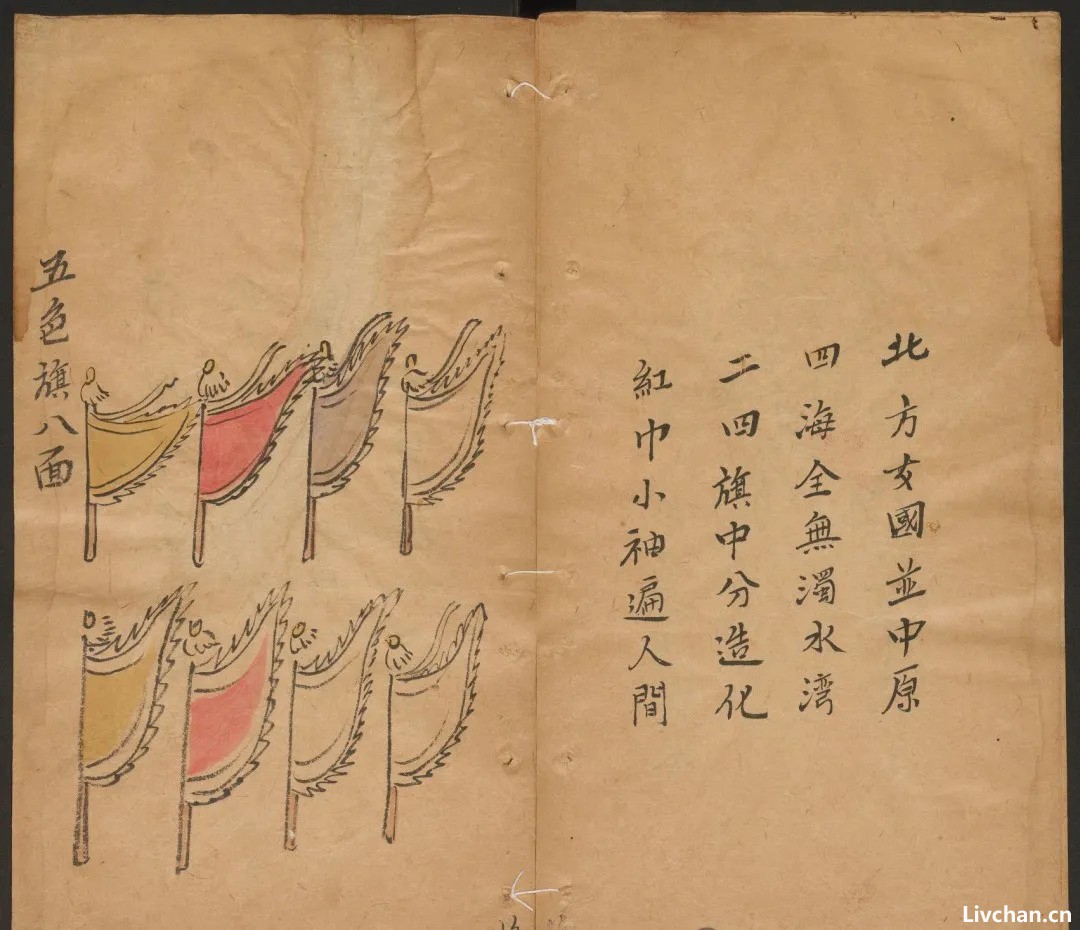 北方女國並中原
四海全無濁水湾
二四旗中分造化
紅巾小袖遍人間
五色旗八面
Livchan.cn